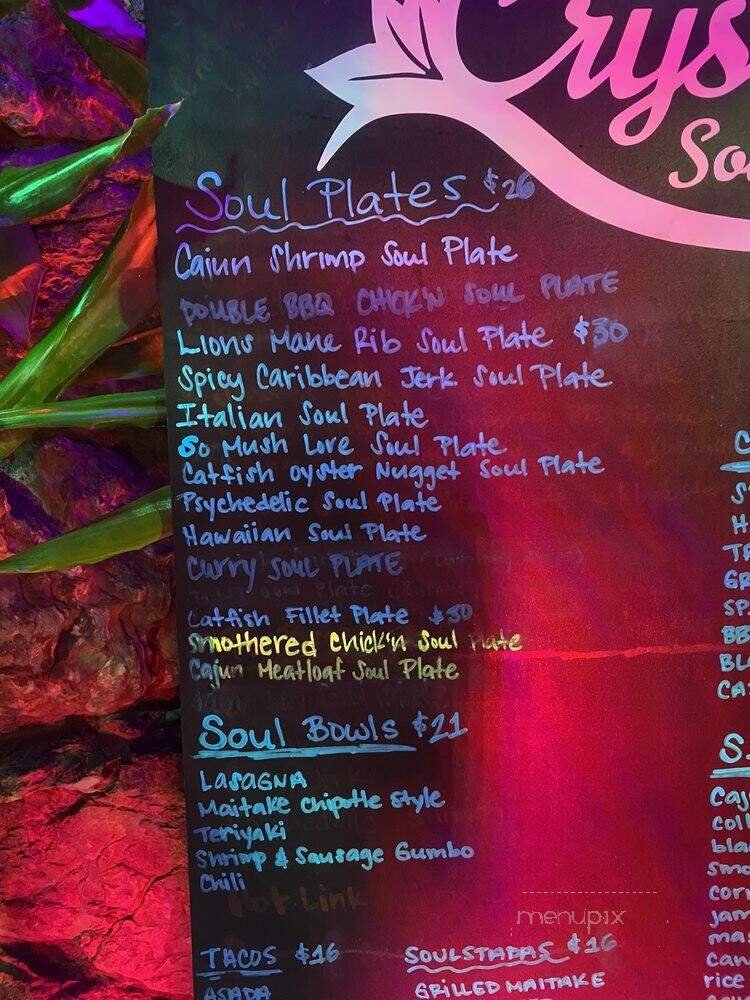 Crys
So
Soul Plates $26
Cajun Shrimp Soul Plate
DOUBLE BBQ CHICK'N SOUL PLATE
Lions Mane Rib Soul Plate $30
Spicy Caribbean Jerk Soul Plate
Italian Soul Plate
So Mush Love Soul Plate
Catfish Oyster Nugget Soul Plate
Psychedelic Soul Plate
Hawaiian Soul Plate
CURRY SOUL PLATE
Catfish Fillet Plate $30
Smothered Chick'n Soul Plate
Cajun Meatloaf Soul Plate
Soul Bowls $21
LASAGNA
Maitake Chipotle Style
Teriyaki
Shrimp & Sausage Gumbo
Chili
Hot Link
TACOS $16
ASADA
SOULSTADAS $16
GRILLED MAITAKE
C
S
H
TR
GR
SP
BB
BL
CA
S
Caj
coll
bla
smo
corn
jam
mas
can
rice
menupix